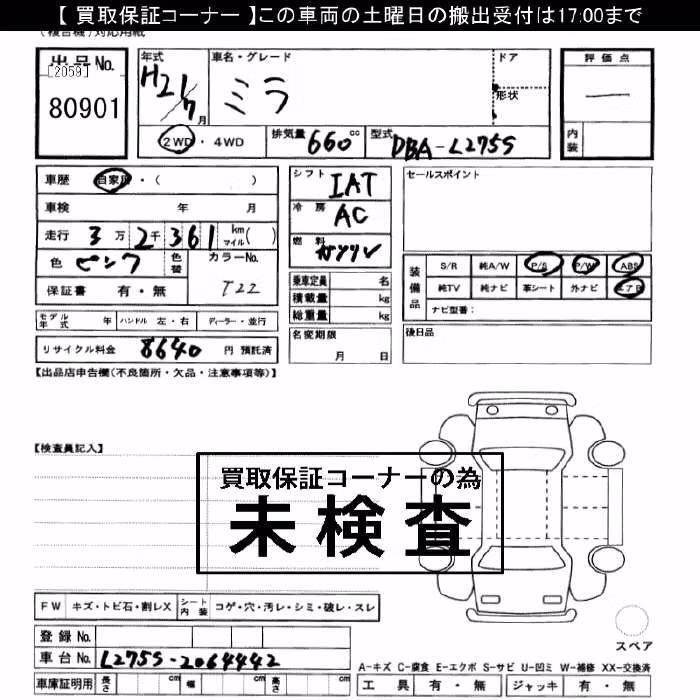 【 買取保証コーナー 】この車両の土曜日の搬出受付は17:00まで
(複合機)対応用紙
出品No. 年式 車名・グレード ドア 評価点
[2059] H21/7月 ミラ 形状 —
80901 内装
2WD・4WD 排気量 660cc 型式 DBA-L275S
車歴 自家用・( ) シフト IAT セールスポイント
車検 年 月 冷房 AC
走行 3万2千361 km マイル( ) 燃料 ガソリン
色 ピンク 色替 カラーNo. 装備品 S/R 純A/W P/S P/W ABS
保証書 有・無 T22 乗車定員 名 純TV 純ナビ 革シート 外ナビ エアB
積載量 kg ナビ型番:
モデル年式 年 ハンドル 左・右 ディーラー・並行 総重量 kg 後日品
リサイクル料金 8640 円 預託済 名変期限 月 日
【出品店申告欄(不良箇所・欠品・注意事項等)】
【検査員記入】
買取保証コーナーの為
未検査
FW キズ・トビ石・割レX シート内装 コゲ・穴・汚レ・シミ・破レ・スレ
スペア
登録No.
車台No. L275S-2064442 A-キズ C-腐食 E-エクボ S-サビ U-凹ミ W-補修 XX-交換済
車庫証明用 長さ cm 幅 cm 高さ cm 工具 有・無 ジャッキ 有・無